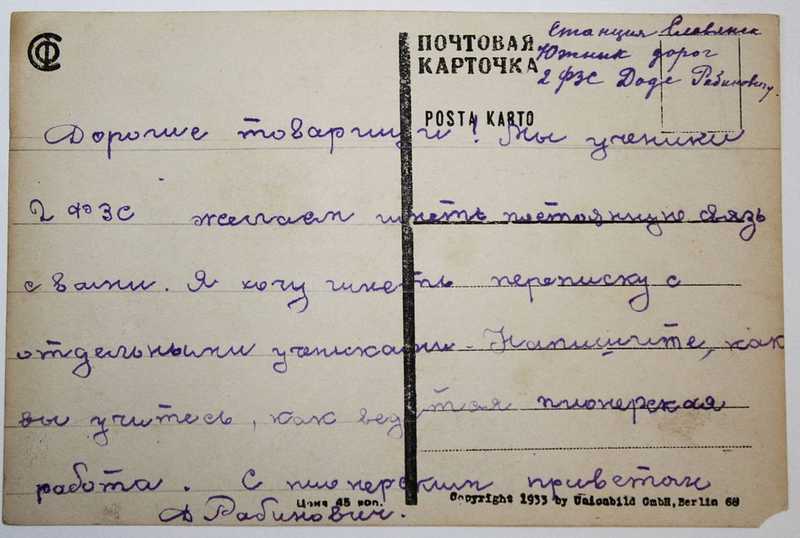 Станция Славянск
ПОЧТОВАЯ Южных дорог
КАРТОЧКА 2 ФЗС Доде Рабиновичу
POSTA KARTO
Дорогие товарищи! Мы ученики
2 ФЗС желаем иметь постоянную связь
с вами. Я хочу иметь переписку с
отдельными учениками. Напишите, как
вы учитесь, как ведётая пионерская
работа. С пионерским приветом
Цена 45 коп. Copyright 1933 by Unionbild GmbH, Berlin 68
Д Рабинович.